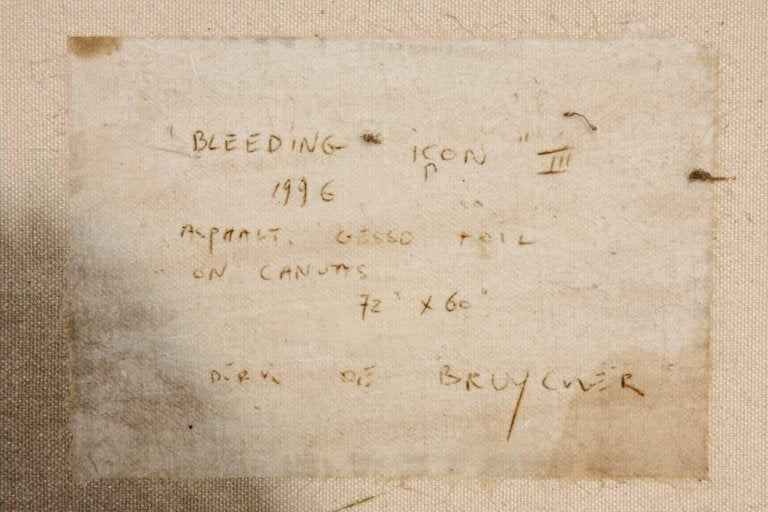 "BLEEDING ICON" III
1996
ASPHALT. GESSO + OIL
ON CANVAS
72" X 60"
DIRK DE BRUYCKER